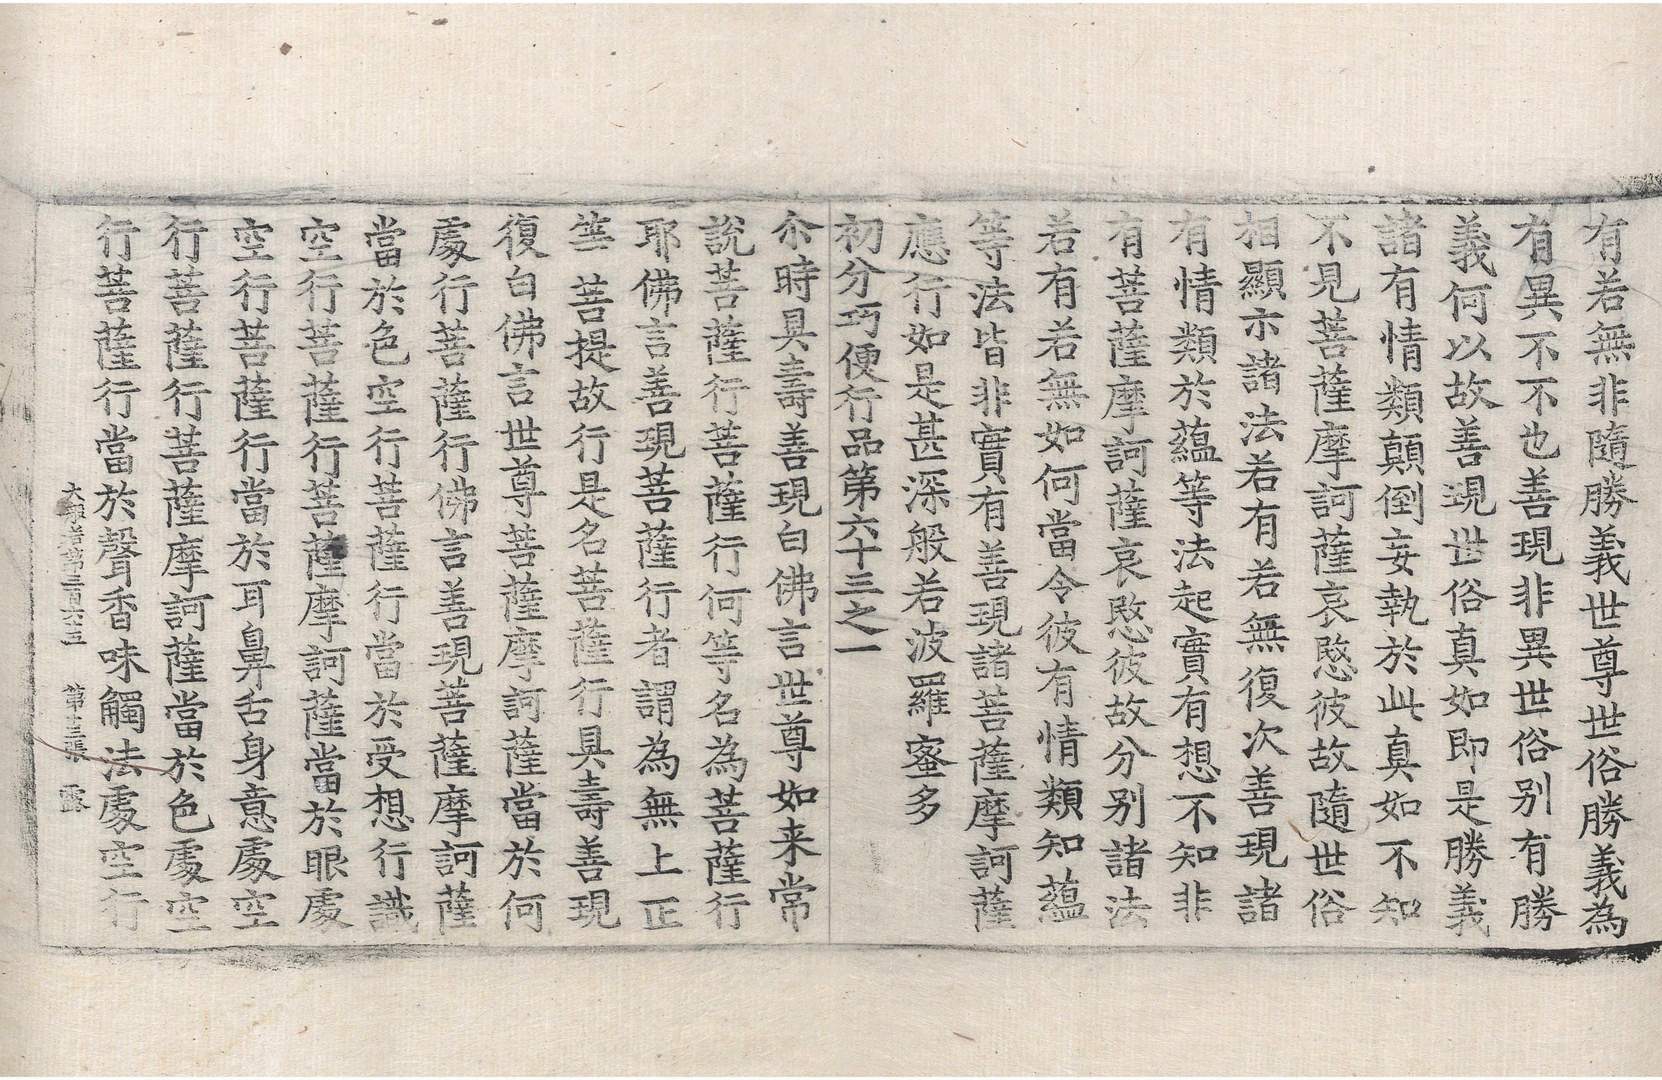 有若無非隨勝義世尊世俗勝義為
有異不不也善現非異世俗別有勝
義何以故善現世俗真如即是勝義
諸有情類顛倒妄執於此真如不知
不見菩薩摩訶薩哀愍彼故隨世俗
相顯示諸法若有若無復次善現諸
有情類於蘊等法起實有想不知非
有菩薩摩訶薩哀愍彼故分別諸法
若有若無如何當令彼有情類知蘊
等法皆非實有善現諸菩薩摩訶薩
應行如是甚深般若波羅蜜多
初分巧便行品第六十三之一
尒時具壽善現白佛言世尊如来常
說菩薩行菩薩行何等名為菩薩行
耶佛言善現菩薩行者謂為無上正
等菩提故行是名菩薩行具壽善現
復白佛言世尊菩薩摩訶薩當於何
處行菩薩行佛言善現菩薩摩訶薩
當於色空行菩薩行當於受想行識
空行菩薩行菩薩摩訶薩當於眼處
空行菩薩行當於耳鼻舌身意處空
行菩薩行菩薩摩訶薩當於色處空
行菩薩行當於聲香味觸法處空行
大般若第三百六十五 第十三張 露